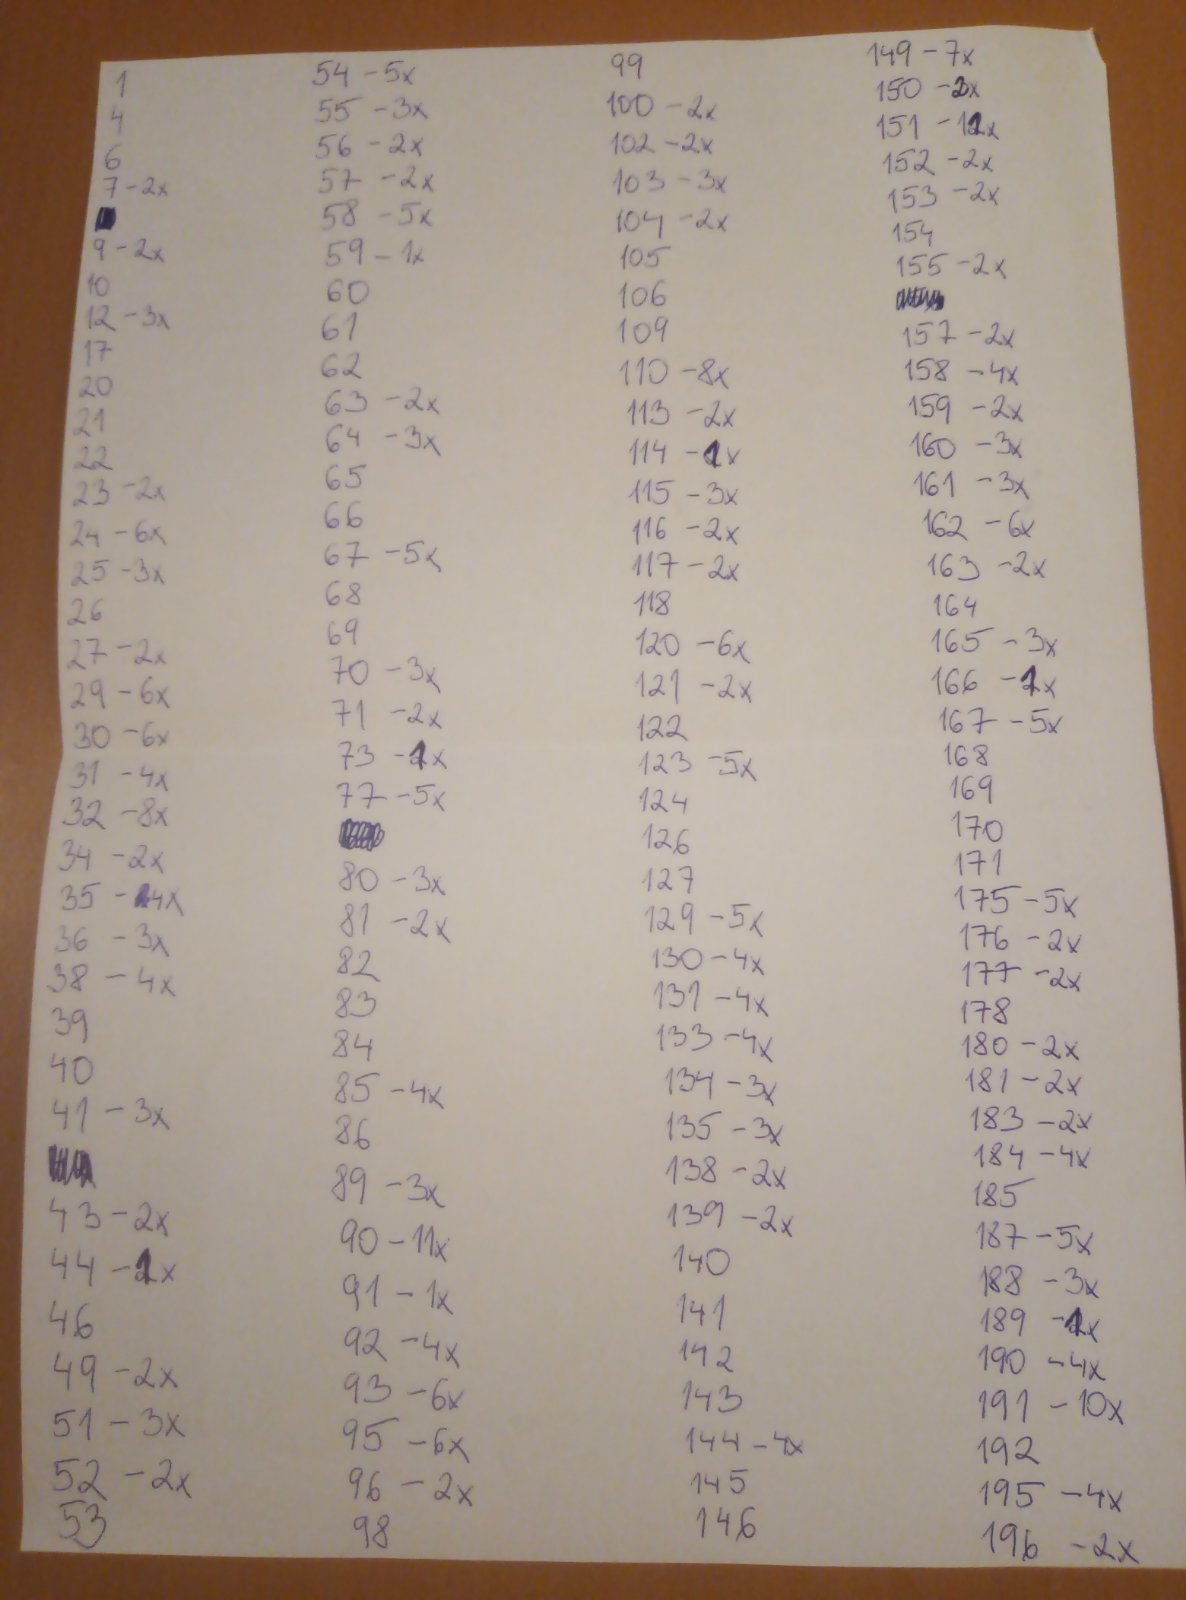 1
4
6
7-2x
9-2x
10
12-3x
17
20
21
22
23-2x
24-6x
25-3x
26
27-2x
29-6x
30-6x
31-4x
32-8x
34-2x
35-4x
36-3x
38-4x
39
40
41-3x
43-2x
44-1x
46
49-2x
51-3x
52-2x
53
54-5x
55-3x
56-2x
57-2x
58-5x
59-1x
60
61
62
63-2x
64-3x
65
66
67-5x
68
69
70-3x
71-2x
73-1x
77-5x
80-3x
81-2x
82
83
84
85-4x
86
89-3x
90-11x
91-1x
92-4x
93-6x
95-6x
96-2x
98
99
100-2x
102-2x
103-3x
104-2x
105
106
109
110-8x
113-2x
114-1x
115-3x
116-2x
117-2x
118
120-6x
121-2x
122
123-5x
124
126
127
129-5x
130-4x
131-4x
133-4x
134-3x
135-3x
138-2x
139-2x
140
141
142
143
144-4x
145
146
149-7x
150
151
152-2x
153-2x
154
155-2x
157-2x
158-4x
159-2x
160-3x
161-3x
162-6x
163-2x
164
165-3x
166-1x
167-5x
168
169
170
171
175-5x
176-2x
177-2x
178
180-2x
181-2x
183-2x
184-4x
185
187-5x
188-3x
189-1x
190-4x
191-10x
192
195-4x
196-2x